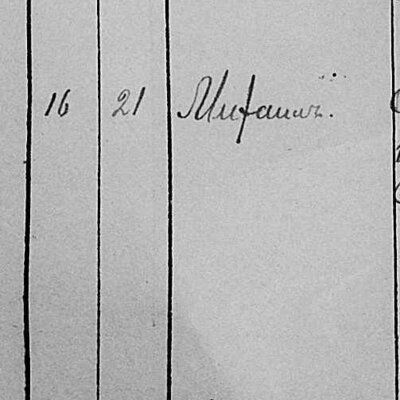 16 21 Михаилъ.